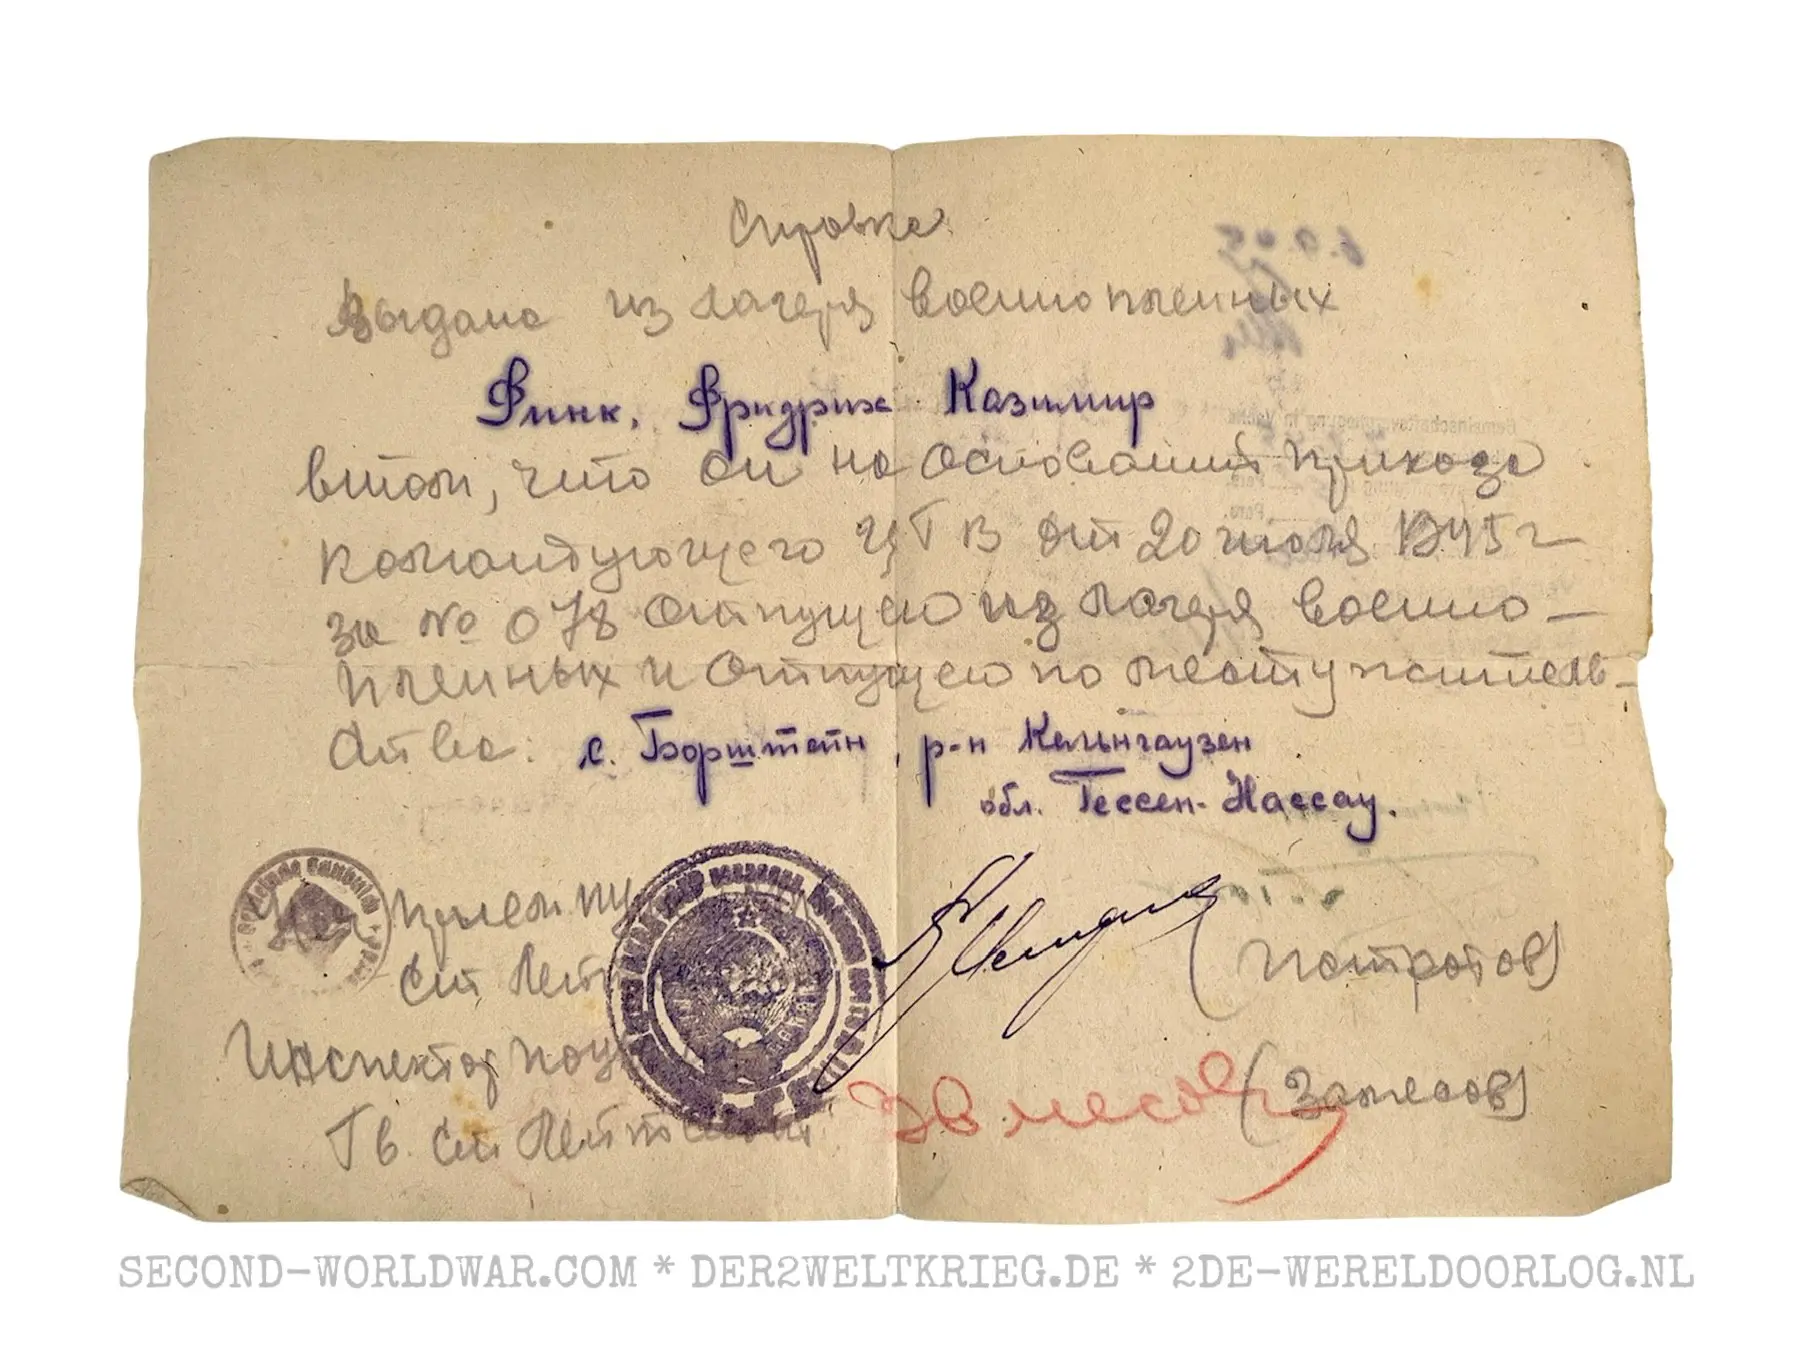 Справка
Выдана из лагеря военнопленных
Финк, Фридрих Казимир
втом, что он на основании приказа
командующего ЦГВ от 20 июля 1945 г
за № 078 отпущен из лагеря военно-
пленных и отпущен по месту житель-
ства: с. Борштейн, р-н Кельнгаузен
обл. Гессен-Нассау.
(Патратов)
Инспектор
Гв. Ст Лейтенант
SECOND-WORLDWAR.COM * DER2WELTKRIEG.DE * 2DE-WERELDOORLOG.NL